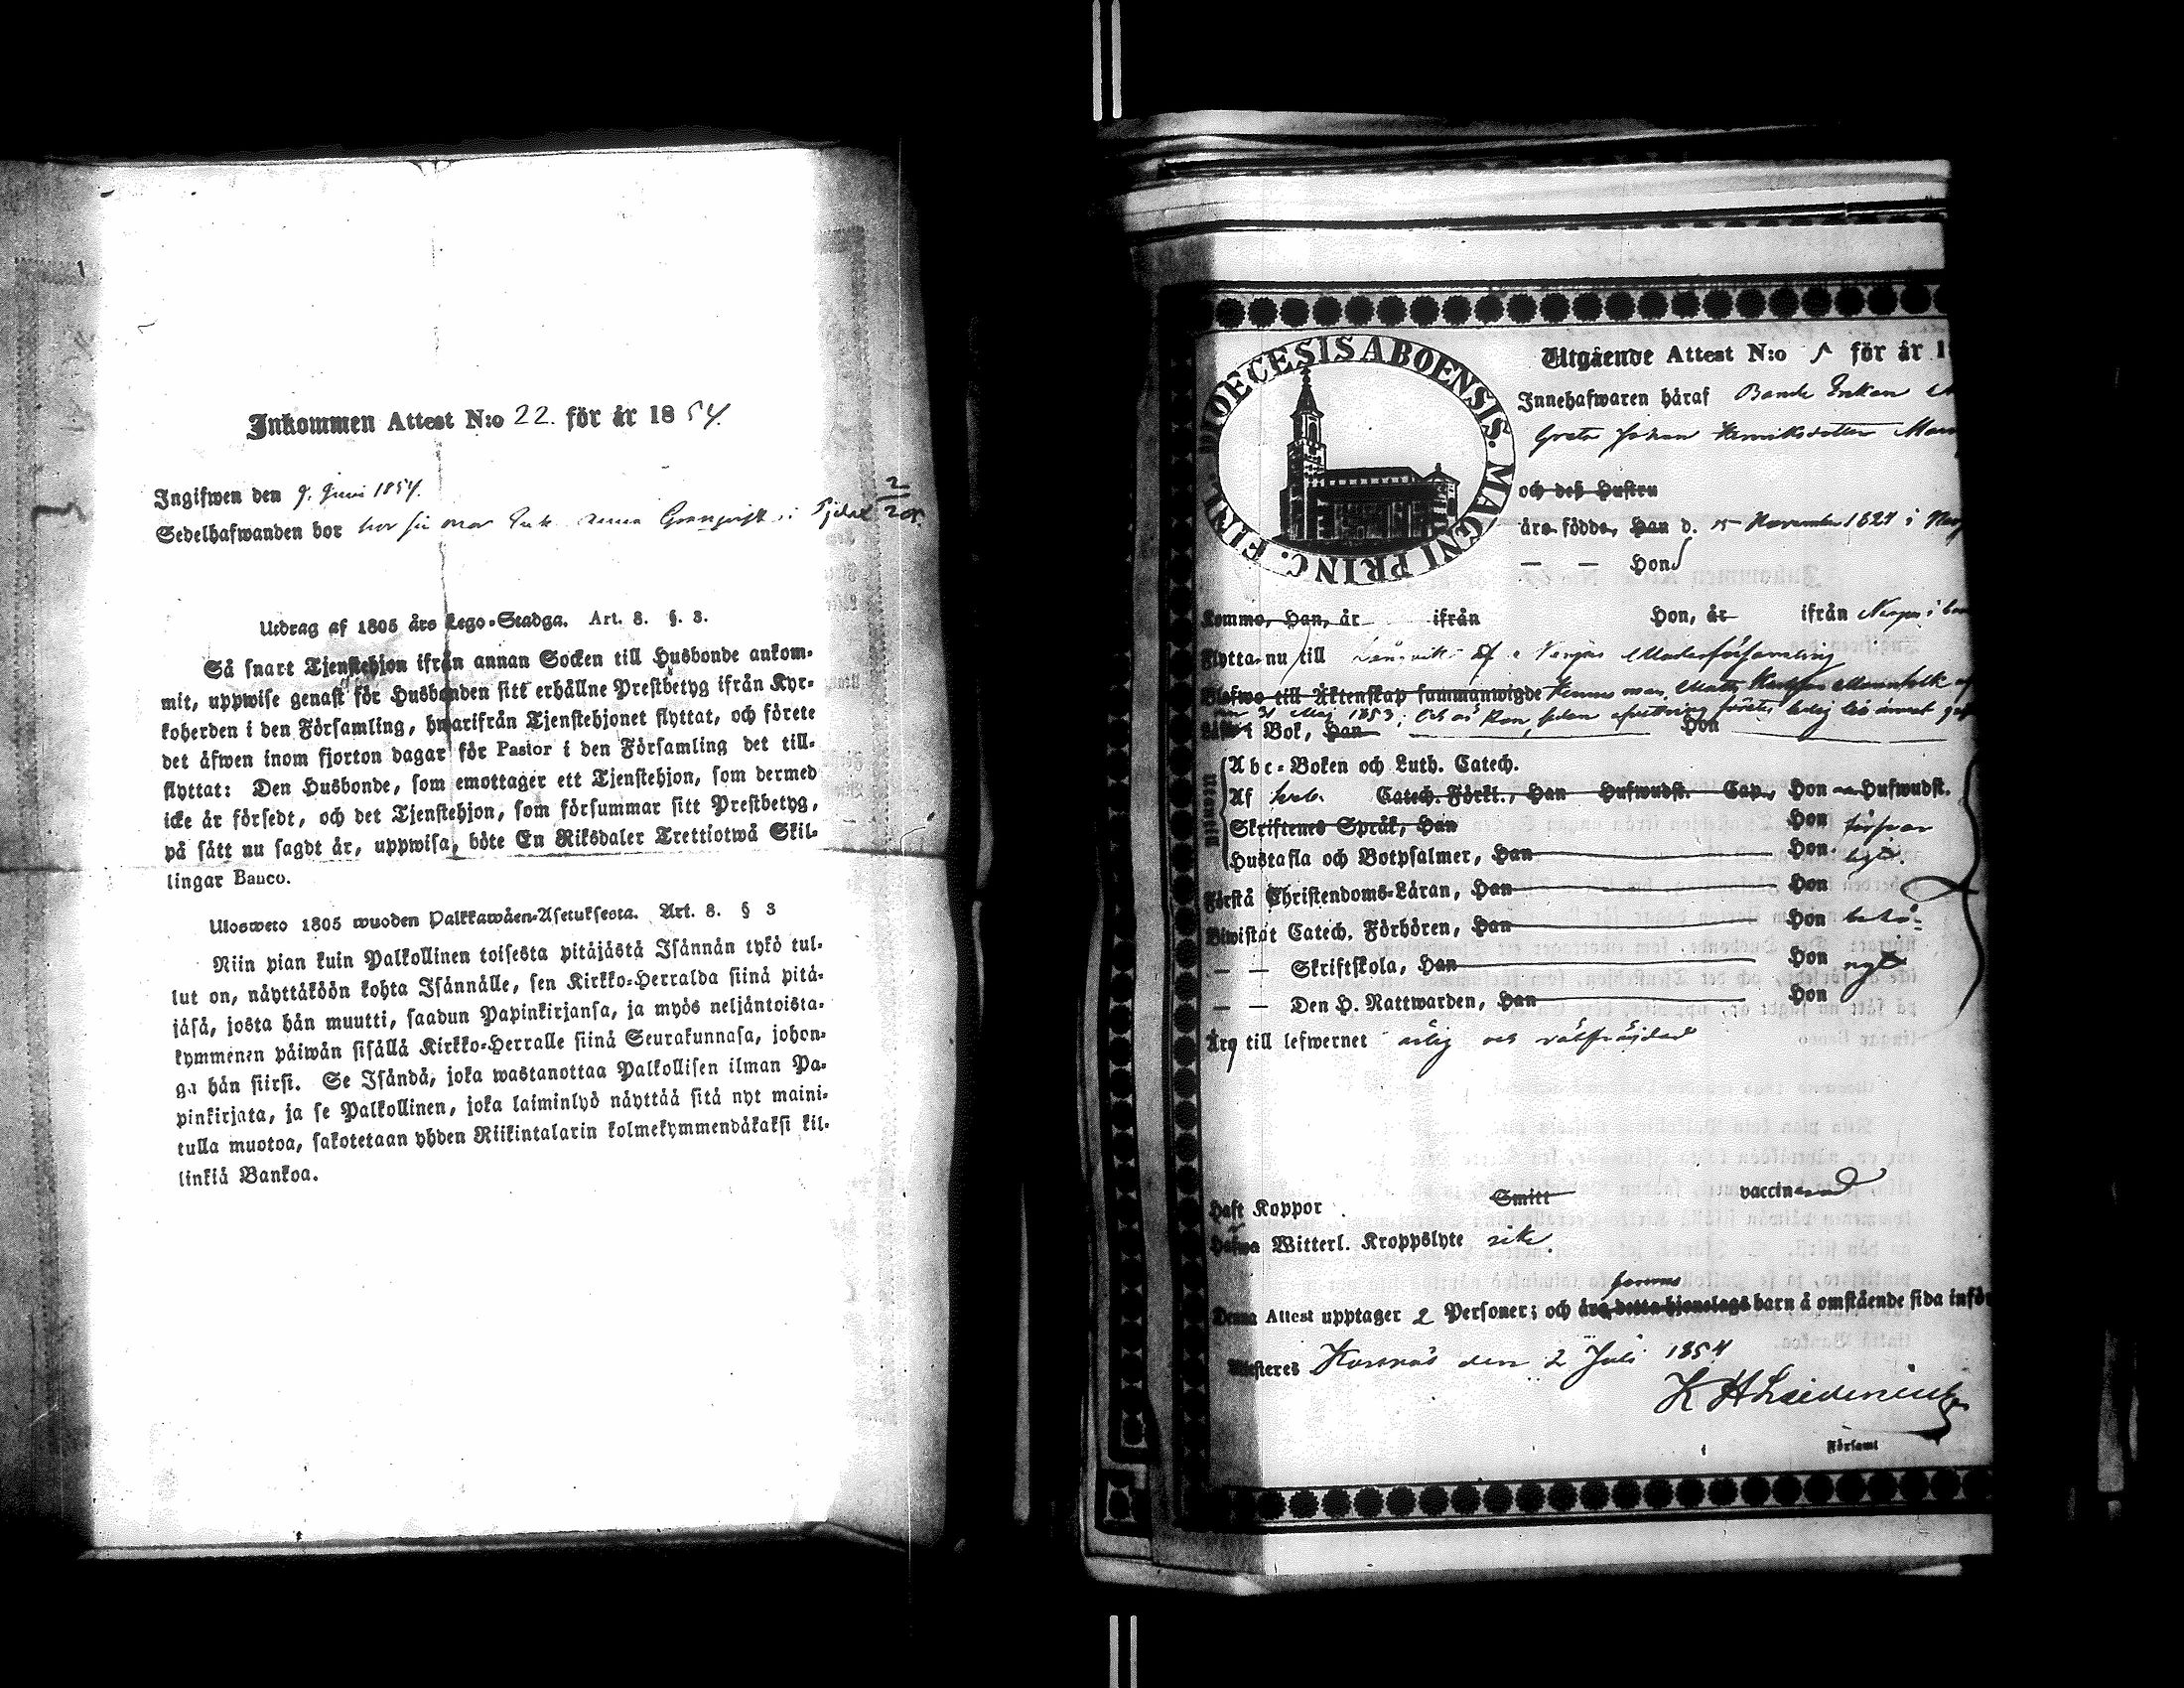 Inkommen Attest N:o 22. för år 1854.
Ingifwen den 9. Juni 1854.
Sedelhafwanden bor hos sin mor Enk. Anna Granqvist i
Utdrag af 1805 års Lego-Stadga. Art. 8. §. 3.
Så snart Tjenstehjon ifrån annan Socken till Husbonde ankom-
mit, uppwise genast för Husbonden sitt erhållne Prestbetyg ifrån Kyr-
koherden i den Församling, hwarifrån Tjenstehjonet flyttat, och förete
det äfwen inom fjorton dagar för Pastor i den Församling det till-
flyttat: Den Husbonde, som emottager ett Tjenstehjon, som dermed
icke är försedt, och det Tjenstehjon, som försummar sitt Prestbetyg,
på sätt nu sagdt är, uppwisa, böte En Riksdaler Trettiotwå Skil-
lingar Banco.
Ulosweto 1805 wuoden Palkkawäen-Asetuksesta. Art. 8. § 3
Niin pian kuin Palkollinen toisesta pitäjästä Isännän tykö tul-
lut on, näyttäköön kohta Isännälle, sen Kirkko-Herralda siinä pitä-
jäsä, josta hän muutti, saadun Papinkirjansa, ja myös neljäntoista-
kymmenen päiwän sisällä Kirkko-Herralle siinä Seurakunnasa, johon-
ga hän siirsi. Se Isändä, joka wastanottaa Palkollisen ilman Pa-
pinkirjata, ja se Palkollinen, joka laiminlyö näyttää sitä nyt maini-
tulla muotoa, sakotetaan yhden Riikintalarin kolmekymmendäkaksi kil-
linkiä Bankoa.
DIOECESIS ABOENSIS. MAGNI PRINC. FINL.
Utgående Attest N:o 5 för år 1
Innehafwaren häraf Bonde Enkan
Greta Johan Henriksdotter
och deß Hustru
äro födde, Han d. 15 November 1827 i
— — Hon
Komma, Han, år ifrån Hon, år ifrån
Flytta nu till
Blefwo till Äktenskap sammanwigde
den 31 Maj 1853;
Läser i Bok, Han Hon
Utanwill
Abc-Boken och Luth. Catech.
Af Catech. Förkl., Han Hufwudst. Cap., Hon Hufwudst.
Skriftenes Språk, Han Hon förswar
Hustafla och Botpsalmer, Han Hon ligt.
Förstå Christendoms-Läran, Han Hon
Biwistat Catech. Förhören, Han Hon behö-
— — Skriftskola, Han Hon rigt
— — Den H. Nattwarden, Han Hon
Äro till lefwernet ärlig och välfräjdad
Haft Koppor Smitt vaccinerad
Hafwa Witterl. Kroppslyte icke.
hennes
Denna Attest upptager 2 Personer; och äro detta hjonelags barn å omstående sida inför
Attesteres Korsnäs den 2 Juli 1854
Församl